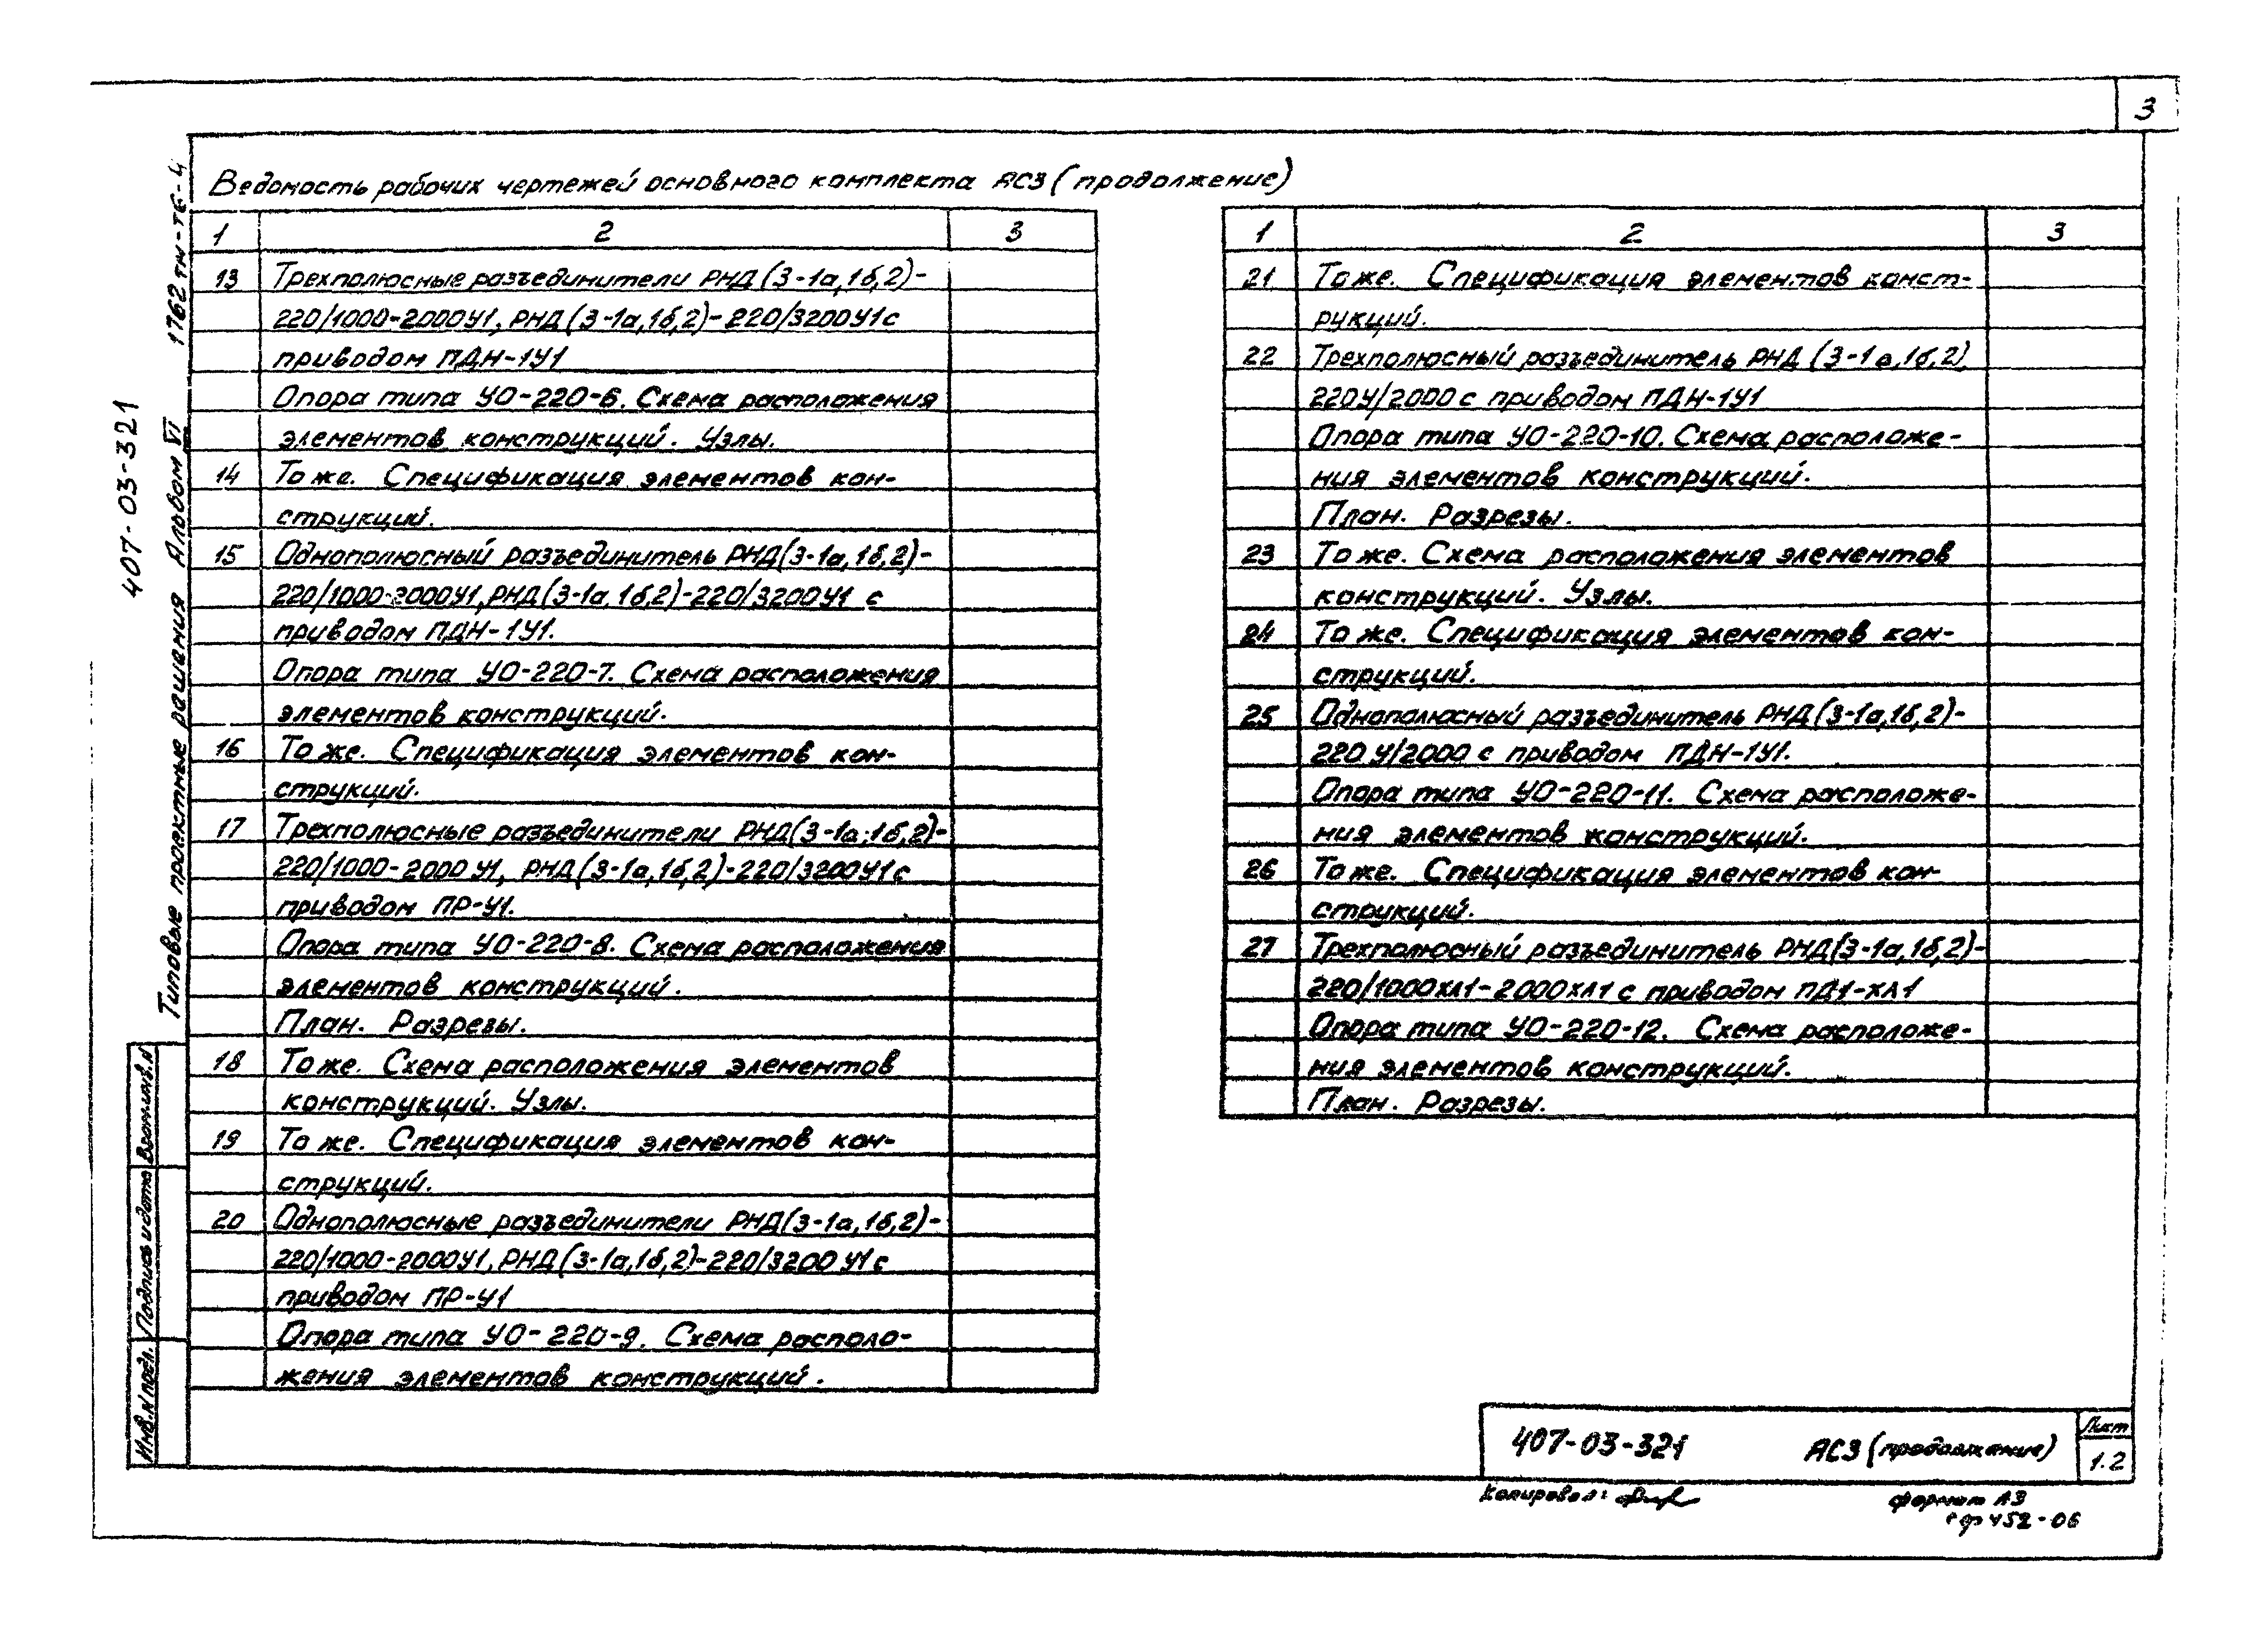 3
Ведомость рабочих чертежей основного комплекта АС3 (продолжение)
1 2 3
13 Трехполюсные разъединители РНД(3-1а,1б,2)-
220/1000-2000У1, РНД(3-1а,1б,2)-220/3200У1 с
приводом ПДН-1У1
Опора типа УО-220-6. Схема расположения
элементов конструкций. Узлы.
14 То же. Спецификация элементов кон-
струкций.
15 Однополюсный разъединитель РНД(3-1а,1б,2)-
220/1000-2000У1, РНД(3-1а,1б,2)-220/3200У1 с
приводом ПДН-1У1.
Опора типа УО-220-7. Схема расположения
элементов конструкций.
16 То же. Спецификация элементов кон-
струкций.
17 Трехполюсные разъединители РНД(3-1а,1б,2)-
220/1000-2000 У1, РНД(3-1а,1б,2)-220/3200У1 с
приводом ПР-У1.
Опора типа УО-220-8. Схема расположения
элементов конструкций.
План. Разрезы.
18 То же. Схема расположения элементов
конструкций. Узлы.
19 То же. Спецификация элементов кон-
струкций.
20 Однополюсные разъединители РНД(3-1а,1б,2)-
220/1000-2000У1, РНД(3-1а,1б,2)-220/3200 У1 с
приводом ПР-У1
Опора типа УО-220-9. Схема располо-
жения элементов конструкций.
1 2 3
21 То же. Спецификация элементов конст-
рукций.
22 Трехполюсный разъединитель РНД (3-1а,1б,2)
220У/2000 с приводом ПДН-1У1
Опора типа УО-220-10. Схема расположе-
ния элементов конструкций.
План. Разрезы.
23 То же. Схема расположения элементов
конструкций. Узлы.
24 То же. Спецификация элементов кон-
струкций.
25 Однополюсный разъединитель РНД(3-1а,1б,2)-
220 У/2000 с приводом ПДН-1У1.
Опора типа УО-220-11. Схема расположе-
ния элементов конструкций.
26 То же. Спецификация элементов кон-
струкций.
27 Трехполюсный разъединитель РНД(3-1а,1б,2)-
220/1000ХЛ1-2000ХЛ1 с приводом ПД1-ХЛ1
Опора типа УО-220-12. Схема расположе-
ния элементов конструкций.
План. Разрезы.
407-03-321
Типовые проектные решения Альбом VI 1762тм-т6-4
Инв.N подл. Подпись и дата Взам.инв.N
407-03-321 АС3 (продолжение) Лист
1.2
Копировал: формат А3
452-06